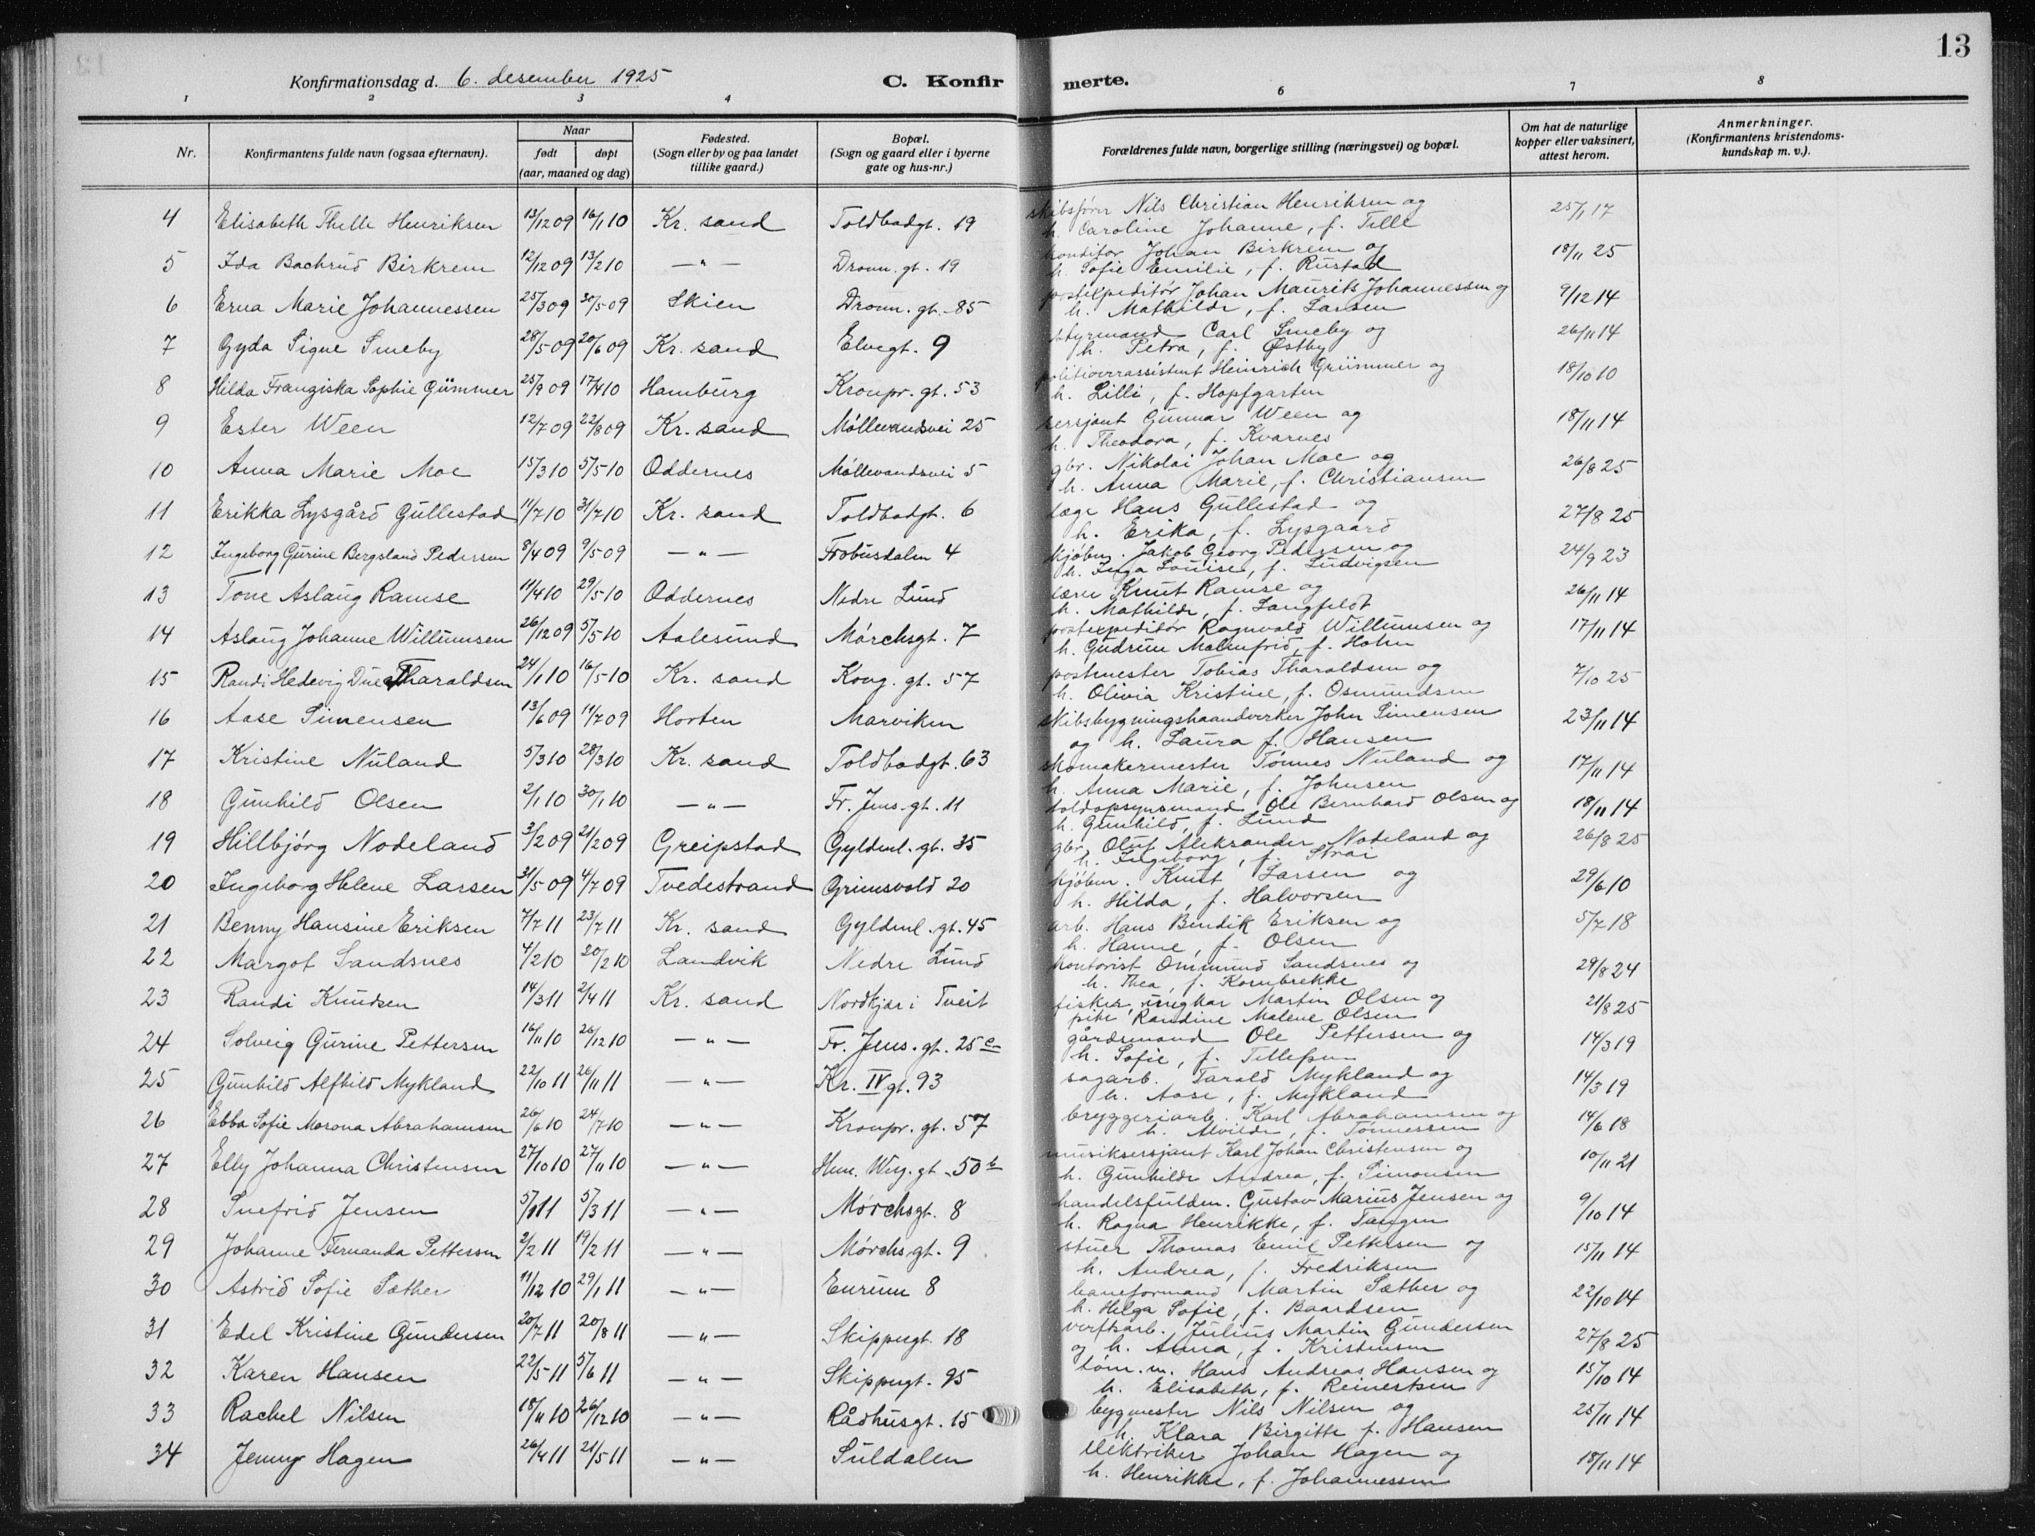 13
Konfirmationsdag d. 6. desember 1925
C. Konfirmerte.
1 2 3 4 6 7 8
Nr.
Konfirmantens fulde navn (ogsaa efternavn).
Naar
født døpt
(aar, maaned og dag)
Fødested.
(Sogn eller by og paa landet
tillike gaard.)
Bopæl.
(Sogn og gaard eller i byerne
gate og hus-nr.)
Forældrenes fulde navn, borgerlige stilling (næringsvei) og bopæl.
Om hat de naturlige
kopper eller vaksinert,
attest herom.
Anmerkninger.
(Konfirmantens kristendoms-
kundskap m. v.)
4 Elisabeth Thelle Henriksen 13/12 09 16/1 10 Kr. sand Toldbodgt. 19 skibsfører Nils Christian Henriksen og 25/1 17
h. Caroline Johanne, f. Tille
5 Ida Bachrud Birkrem 12/12 09 13/2 10 —"— Dronn. gt. 19 konditor Johan Birkrem og 18/11 25
h. Sofie Emilie, f. Rustad
6 Erna Marie Johannessen 25/3 09 30/5 09 Skien Dronn. gt. 85 postexpeditør Johan Maurits Johannessen og 9/12 14
h. Mathilde, f. Larsen
7 Gyda Signe Smeby 28/5 09 20/6 09 Kr. sand Elvegt. 9 styrmand Carl Smeby og 26/11 14
h. Petra, f. Østby
8 Hilda Franziska Sophie Gümmer 25/9 09 17/4 10 Hamburg Kronpr. gt. 53 politioverassistent Heinrich Grümmer og 18/10 10
h. Lilli, f. Hopfgarten
9 Ester Ween 12/7 09 22/8 09 Kr. sand Møllevandsvei 25 sersjant Gunnar Ween og 18/11 14
h. Theodora, f. Kvarnes
10 Anna Marie Moe 15/3 10 5/5 10 Oddernes Møllevandsvei 5 gbr. Nikolai Johan Moe og 26/8 25
h. Anna Marie, f. Christiansen
11 Erikka Lysgård Gullestad 11/7 10 31/7 10 Kr. sand Toldbodgt. 6 læge Hans Gullestad og 27/8 25
h. Erika, f. Lysgaard
12 Ingeborg Gurine Bergsland Pedersen 8/4 09 9/5 09 —"— Frobusdalen 4 kjøbm. Jakob Georg Pedersen og 24/9 23
h. Inga Louise, f. Ludvigsen
13 Tone Aslaug Ramse 11/4 10 29/5 10 Oddernes Nedre Lund lærer Knut Ramse og 26/11 14
h. Mathilde, f. Langfeldt
14 Aslaug Johanne Willumsen 26/12 09 5/5 10 Aalesund Mørchsgt. 7 postexpeditør Ragnvald Willumsen og 17/11 14
h. Gudrun Malmfrid, f. Holm
15 Randi Hedevig Due Tharaldsen 24/1 10 16/5 10 Kr. sand Kong. gt. 57 postmester Tobias Tharaldsen og 7/10 25
h. Olivia Kristine, f. Osmundsen
16 Aase Simensen 13/6 09 11/7 09 Horten Marviken skibsbygningshaandverker John Simensen 23/11 14
og h. Laura f. Hansen
17 Kristine Nuland 5/3 10 28/3 10 Kr. sand Toldbodgt. 63 skomakermester Tønnes Nuland og 17/11 14
h. Anna Marie, f. Johnsen
18 Gunhild Olsen 2/1 10 30/1 10 —"— Fr. Jens. gt. 11 toldopsynsmand Ole Bernhard Olsen og 18/11 14
h. Gunhild, f. Lund
19 Hillbjørg Nodeland 3/2 09 21/2 09 Greipstad Gyldenl. gt. 35 gbr. Oluf Aleksander Nodeland og 26/8 25
h. Ingeborg, f. Strai
20 Ingeborg Helene Larsen 31/5 09 4/7 09 Tvedestrand Grimsvold 20 kjøbm. Knut Larsen og 29/6 10
h. Hilda, f. Halvorsen
21 Benny Hansine Eriksen 7/7 11 23/7 11 Kr. sand Gyldenl. gt. 45 arb. Hans Bendik Eriksen og 5/7 18
h. Hanne, f. Olsen
22 Margot Sandsnes 4/2 10 20/2 10 Landvik Nedre Lund kontorist Ommund Sandsnes og 29/8 24
h. Thea, f. Kornbrekke
23 Randi Knudsen 14/3 11 2/4 11 Kr. sand Nordkjær i Tveit fisker, ungkar Martin Olsen og 21/8 25
pike Randine Malene Olsen
24 Solveig Gurine Pettersen 16/11 10 26/12 10 —"— Fr. Jens. gt. 25 c gårdsmand Ole Pettersen og 14/3 19
h. Sofie, f. Tellefsen
25 Gunhild Alfhild Mykland 22/10 11 26/11 11 —"— Kr. IV gt. 93 sagarb. Tarald Mykland og 14/3 19
h. Aase, f. Mykland
26 Ebba Sofie Morona Abrahamsen 26/6 10 24/7 10 —"— Kronpr. gt. 57 bryggeriarb. Karl Abrahamsen og 14/6 18
h. Alvilde, f. Tønnessen
27 Elly Johanna Christensen 27/10 10 27/11 10 —"— Hen. Werg. gt. 50 b musiksersjant Karl Johan Christensen og 10/11 21
h. Gunhilde Andrea, f. Simonsen
28 Snefrid Jensen 5/1 11 5/3 11 —"— Mørchsgt. 8 handelsfuldm. Gustav Marius Jensen og 9/10 14
h. Ragna Henrikke, f. Tangen
29 Johanne Fernanda Pettersen 2/2 11 19/2 11 —"— Mørchsgt. 9 stuer Thomas Emil Pettersen og 15/11 14
h. Andrea, f. Fredriksen
30 Astrid Sofie Sæther 11/12 10 29/1 11 —"— Enrum 8 baneformand Martin Sæther og 22/10 14
h. Helga Sofie, f. Baardsen
31 Edel Kristine Gundersen 20/7 11 20/8 11 —"— Skippergt. 18 verftsarb. Julius Martin Gundersen 27/8 25
og h. Anna, f. Kristensen
32 Karen Hansen 22/5 11 5/6 11 —"— Skippergt. 95 tøm.m. Hans Andreas Hansen og 15/10 14
h. Elisabeth, f. Reinertsen
33 Rachel Nilsen 18/11 10 26/12 10 —"— Rådhusgt. 15 bygmester Nils Nilsen og 25/11 14
h. Klara Birgitte f. Hansen
34 Jenny Hagen 26/4 11 21/5 11 —"— Suldalen elektriker Johan Hagen og 18/11 14
h. Henrikke, f. Johannessen